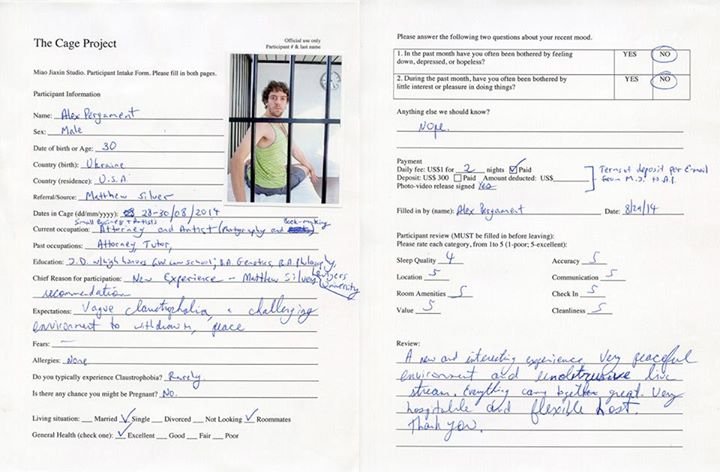 The Cage Project
Official use only
Participant # & last name
Miao Jiaxin Studio. Participant Intake Form. Please fill in both pages.
Participant Information
Name: Alex Pergament
Sex: Male
Date of birth or Age: 30
Country (birth): Ukraine
Country (residence): U.S.A
Referral/Source: Matthew Silver
Dates in Cage (dd/mm/yyyy): 28-30/08/2014
Small Business + Artists
Book-making
Current occupation: Attorney and Artist (Photography and
Past occupations: Attorney, Tutor,
Education: J.D. w/high honors GW Law School; B.A. Genetics, B.A. Philosophy,
Rutgers University
Chief Reason for participation: New Experience - Matthew Silver
recommendation
Expectations: Vague claustrophobia, a challenging
environment to withdraw, peace
Fears: —
Allergies: None
Do you typically experience Claustrophobia? Rarely
Is there any chance you might be Pregnant? No.
Living situation: Married ✓ Single Divorced Not Looking ✓ Roommates
General Health (check one): ✓ Excellent Good Fair Poor
Please answer the following two questions about your recent mood.
1. In the past month have you often been bothered by feeling YES NO
down, depressed, or hopeless?
2. During the past month, have you often been bothered by YES NO
little interest or pleasure in doing things?
Anything else we should know?
Nope.
Payment
Daily fee: US$1 for 2 nights ☑ Paid
Deposit: US$ 300 ☐ Paid Amount deducted: US$
Photo-video release signed Yes
Terms of deposit per E-mail
from M.J. to A.P.
Filled in by (name): Alex Pergament Date: 8/29/14
Participant review (MUST be filled in before leaving):
Please rate each category, from 1 to 5 (1-poor; 5-excellent):
Sleep Quality 4 Accuracy 5
Location 5 Communication 5
Room Amenities 5 Check In 5
Value 5 Cleanliness 5
Review:
A new and interesting experience. Very peaceful
environment and unobtrusive live
stream. Everything came together great. Very
hospitable and flexible host.
Thank you.